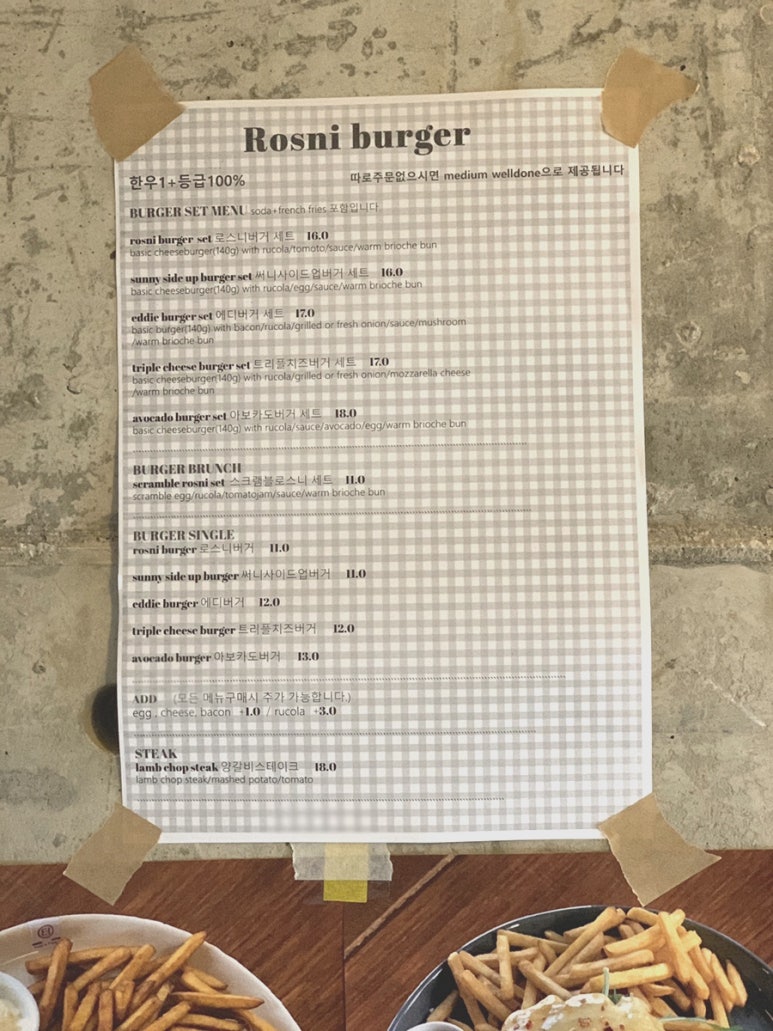 Rosni burger
한우1+등급100%
따로주문없으시면 medium welldone으로 제공됩니다
BURGER SET MENU soda+french fries 포함입니다
rosni burger set 로스니버거 세트 16.0
basic cheeseburger(140g) with rucola/tomoto/sauce/warm brioche bun
sunny side up burger set 써니사이드업버거 세트 16.0
basic cheeseburger(140g) with rucola/egg/sauce/warm brioche bun
eddie burger set 에디버거 세트 17.0
basic burger(140g) with bacon/rucola/grilled or fresh onion/sauce/mushroom
/warm brioche bun
triple cheese burger set 트리플치즈버거 세트 17.0
basic cheeseburger(140g) with rucola/grilled or fresh onion/mozzarella cheese
/warm brioche bun
avocado burger set 아보카도버거 세트 18.0
basic cheeseburger(140g) with rucola/sauce/avocado/egg/warm brioche bun
BURGER BRUNCH
scramble rosni set 스크램블로스니 세트 11.0
scramble egg/rucola/tomatojam/sauce/warm brioche bun
BURGER SINGLE
rosni burger 로스니버거 11.0
sunny side up burger 써니사이드업버거 11.0
eddie burger 에디버거 12.0
triple cheese burger 트리플치즈버거 12.0
avocado burger 아보카도버거 13.0
ADD (모든 메뉴구매시 추가 가능합니다.)
egg , cheese, bacon +1.0 / rucola +3.0
STEAK
lamb chop steak 양갈비스테이크 18.0
lamb chop steak/mashed potato/tomato